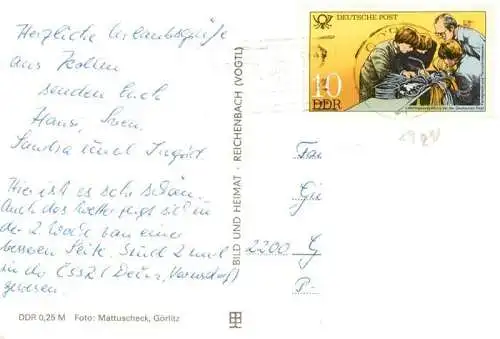 Herzliche Urlaubsgrüße
aus
senden Euch
Hansi, Sven,
Sandra und Ingrid.
Hier ist es sehr schön.
Auch das Wetter zeigt sich in
der 2. Woche von einer
besseren Seite. Sind 2 mal
in der ČSSR
gewesen.
DDR 0,25 M Foto: Mattuscheck, Görlitz
BILD UND HEIMAT · REICHENBACH (VOGTL)
DEUTSCHE POST
10
DDR
Fam
2200 G